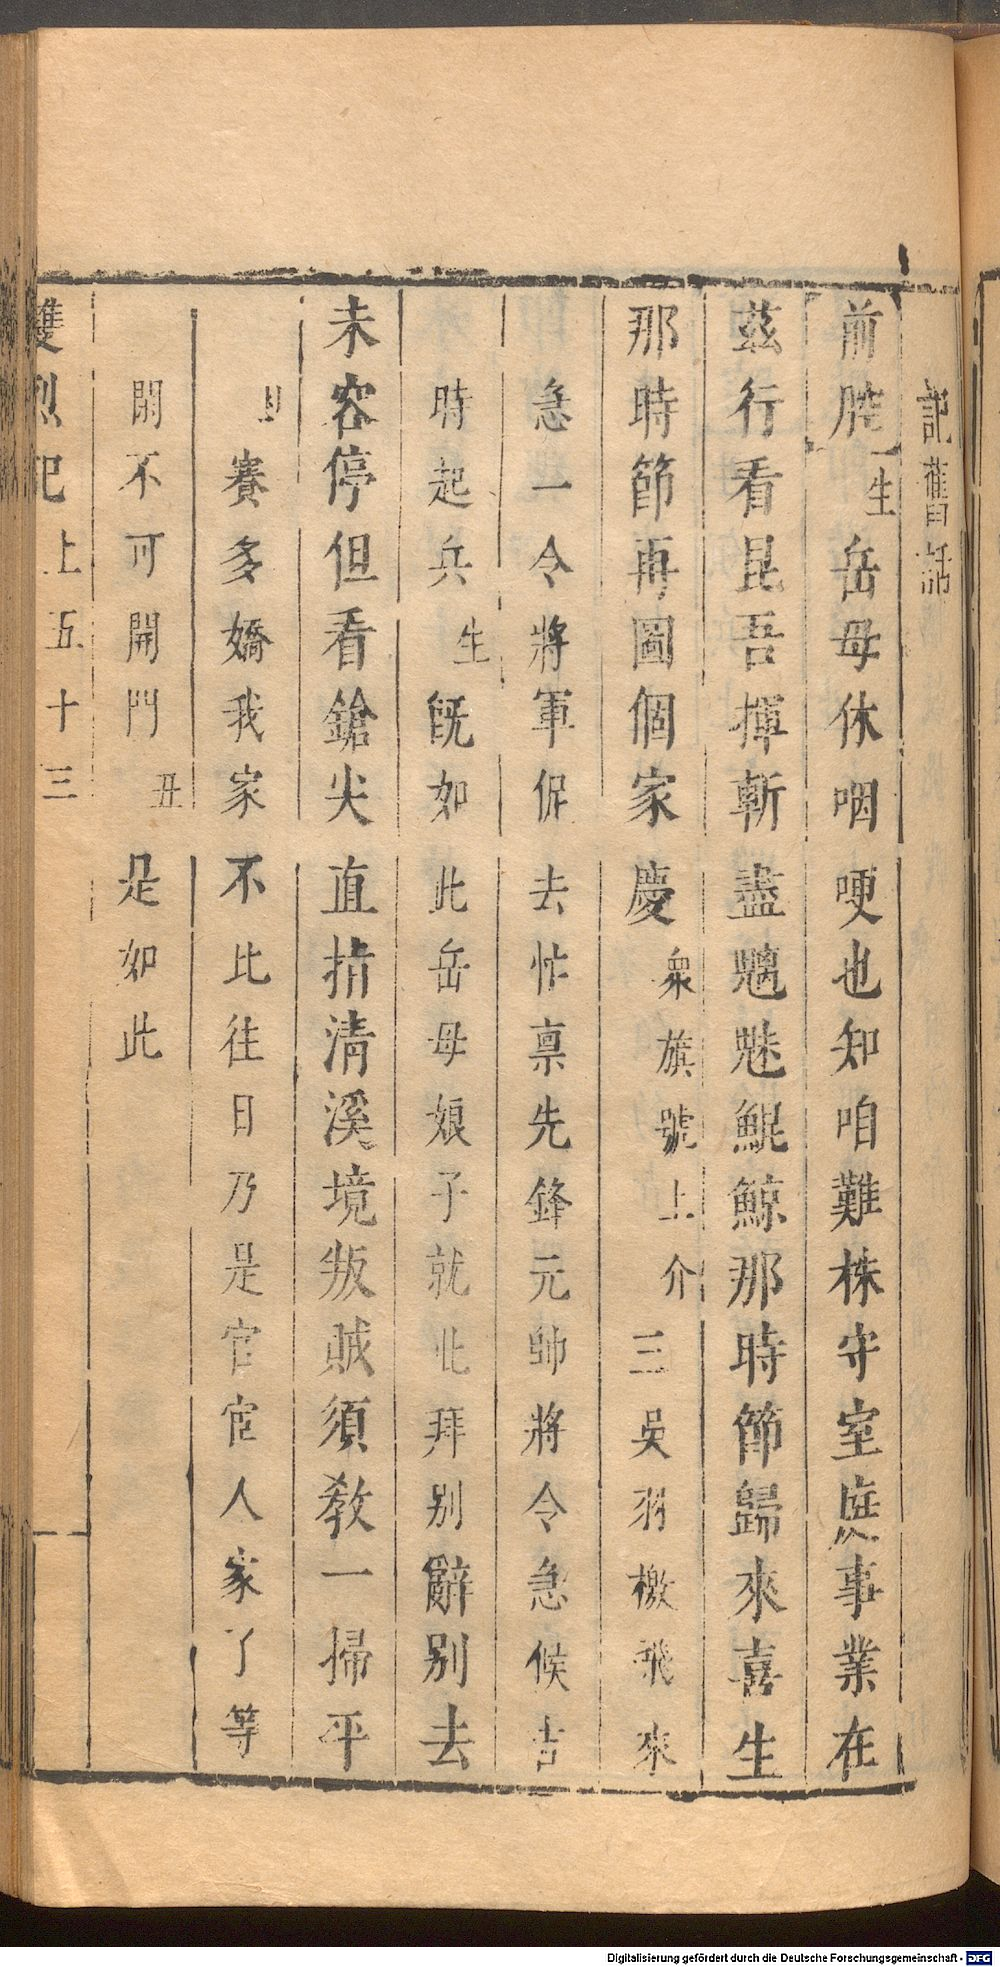 記舊話
前腔 生 岳母休咽哽也知咱難株守室庭事業在
茲行看昆吾揮斬盡魑魅鯤鯨那時節歸來喜生
那時節再圖個家慶 衆旗號上介 三吳羽檄飛來
急一令將軍促去忙禀先鋒元帥將令急候吉
時起兵 生 旣如此岳母娘子就此拜别辭别去
未容停但看鎗尖直指淸溪境叛賊須教一掃平
賽多嬌我家不比往日乃是官宦人家了等
閒不可開門 丑 是如此
雙烈記 上 五十三
Digitalisierung gefördert durch die Deutsche Forschungsgemeinschaft - DFG